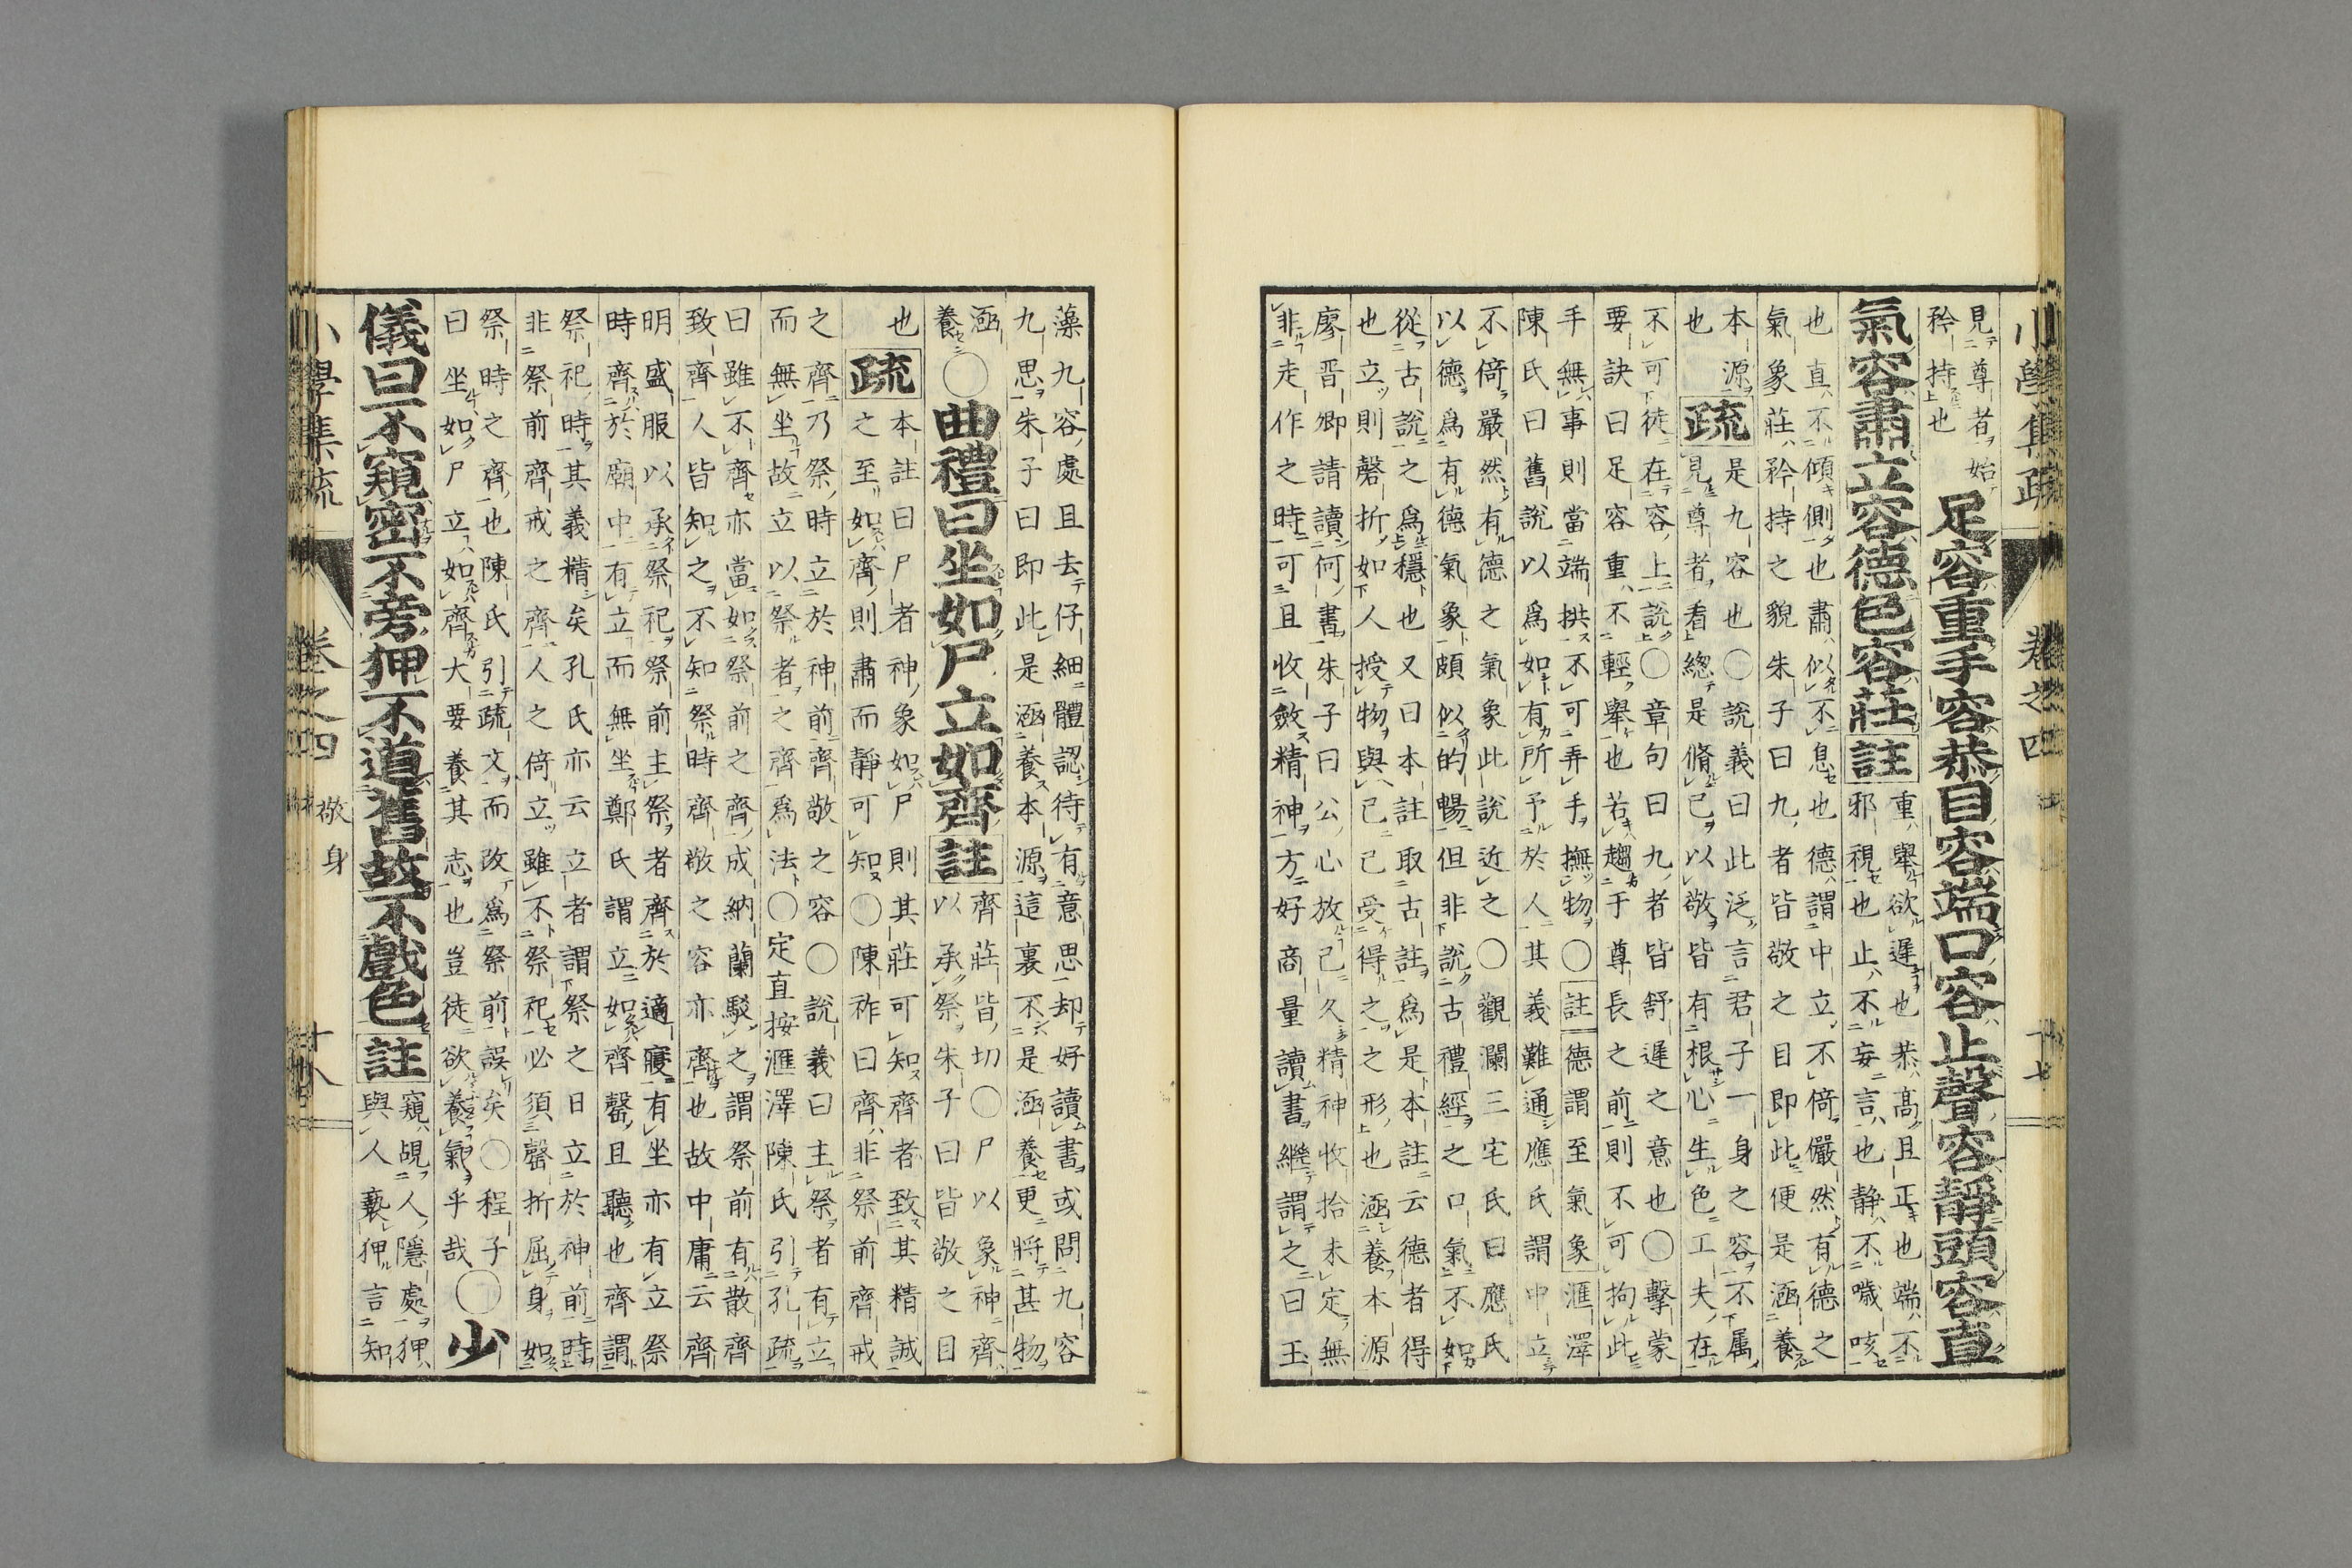 小學集疏 卷之四 十七
見尊者始
矜持也
足容重手容恭目容端口容止聲容靜頭容直
氣容肅立容德色容莊註
重舉欲遲也恭高且正也端不
邪視也止不妄言也靜不噦咳
也直不傾側也肅似不息也德謂中立不倚儼然有德之
氣象莊矜持之貌朱子曰九者皆敬之目即此便是涵養
本源
也
疏
是九容也○說義曰此泛言君子一身之容不属
見尊者看總是脩已以敬皆有根心生色工夫在
不可徒在容上說○章句曰九者皆舒遲之意也○擊蒙
要訣曰足容重不輕舉也若趨于尊長之前則不可拘此
手無事則當端拱不可弄手撫物○註德謂至氣象滙澤
陳氏曰舊說以爲如有所予於人其義難通應氏謂中立
不倚嚴然有德之氣象此說近之○觀瀾三宅氏曰應氏
以德爲有德氣象頗似的暢但非說古禮經之口氣不如
從古說之爲穩也又曰本註取古註爲是本註云德者得
也立則磬折如人授物與已已受得之之形也涵養本源
廖晋卿請讀何書朱子曰公心放已久精神收拾未定無
非走作之時可且收斂精神方好商量讀書繼謂之曰玉
藻九容處且去仔細體認待有意思却好讀書或問九容
九思朱子曰即此是涵養本源這裏不是涵養更將甚物
涵
養
○曲禮曰坐如尸立如齊註
齊莊皆切○尸以象神齊
以承祭朱子曰皆敬之目
也
疏
本註曰尸者神象如尸則其莊可知齊者致其精誠
之至如齊則肅而靜可知○陳祚曰齊非祭前齊戒
之齊乃祭時立於神前齊敬之容○說義曰主祭者有立
而無坐故立以祭者之齊爲法○定直按滙澤陳氏引孔疏
曰雖不齊亦當如祭前之齊成納蘭駁之謂祭前有散齊
致齊人皆知之不知祭時齊敬之容亦齊也故中庸云齊
明盛服以承祭祀祭前主祭者齊於適寢有坐亦有立祭
時齊於廟中有立而無坐鄭氏謂立如齊磬且聽也齊謂
祭祀時其義精矣孔氏亦云立者謂祭之日立於神前時
非祭前齊戒之齊人之倚立雖不祭祀必須磬折屈身如
祭時之齊也陳氏引疏文而改爲祭前誤矣○程子
曰坐如尸立如齊大要養其志也豈徒欲養氣乎哉
○少
儀曰不窺密不旁狎不道舊故不戲色註
窺覘人隱處狎
與人褻狎言知
小學集疏 卷之四 敬身 十八